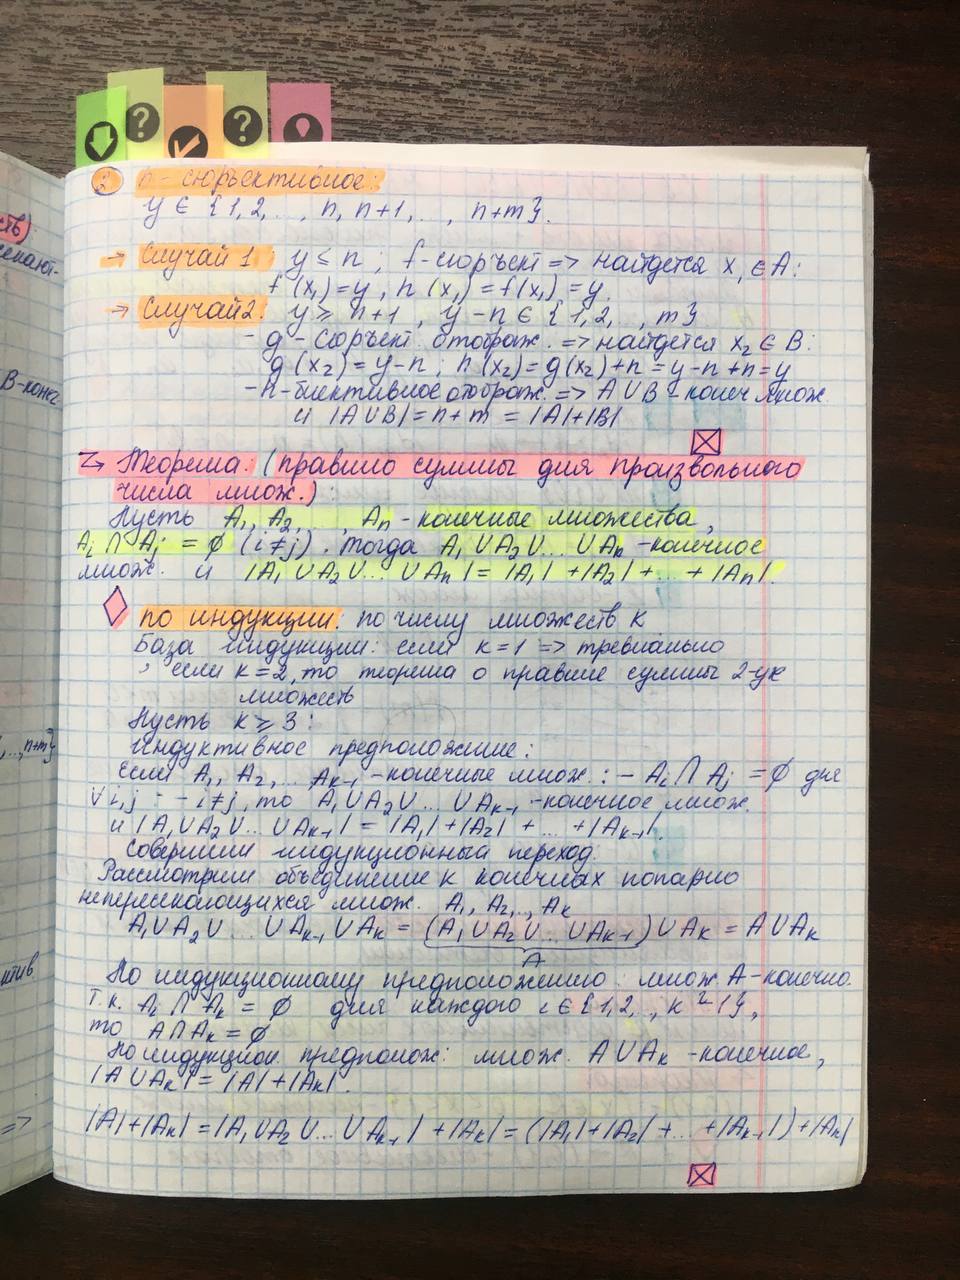 ств)
секают-
② h - сюръективное:
y ∈ {1, 2, ..., n, n+1, ..., n+m}.
→ Случай 1: y ≤ n ; f - сюръект => найдется x₁ ∈ A:
f(x₁) = y, h(x₁) = f(x₁) = y.
→ Случай 2: y ≥ n+1, y-n ∈ {1, 2, .., m}
- g - сюръект. отображ. => найдется x₂ ∈ B:
g(x₂) = y-n; h(x₂) = g(x₂)+n = y-n+n = y
В-конеч
- h - биективное отображ. => A∪B - конеч множ.
и |A∪B| = n+m = |A|+|B|
Теорема: (правило суммы для произвольного
числа множ.):
Пусть A₁, A₂, ..., Aₙ - конечные множества,
Aᵢ ∩ Aⱼ = ∅ (i≠j). тогда A₁∪A₂∪...∪Aₙ - конечное
множ. и |A₁∪A₂∪...∪Aₙ| = |A₁|+|A₂|+...+|Aₙ|.
по индукции: по числу множеств k
База индукции: если k=1 => тревиально
, если k=2, то теорема о правиле суммы 2-ух
множеств
Пусть k ≥ 3:
..., n+m}
Индуктивное предположение:
Если A₁, A₂, ... Aₖ₋₁ - конечные множ.: - Aᵢ ∩ Aⱼ = ∅ для
∀ i, j : - i≠j, то A₁∪A₂∪...∪Aₖ₋₁ - конечное множ.
и |A₁∪A₂∪...∪Aₖ₋₁| = |A₁|+|A₂|+...+|Aₖ₋₁|.
Совершим индукционный переход.
Рассмотрим объединение k конечных попарно
непересекающихся множ. A₁, A₂, .., Aₖ
A₁∪A₂∪...∪Aₖ₋₁∪Aₖ = (A₁∪A₂∪...∪Aₖ₋₁)∪Aₖ = A∪Aₖ
A
ектив
По индукционному предположению: множ. A - конечно.
т.к. Aᵢ ∩ Aₖ = ∅ для каждого i ∈ {1, 2, .., k-1},
то A∩Aₖ = ∅
По индукцион. предполож: множ. A∪Aₖ - конечное,
|A∪Aₖ| = |A|+|Aₖ|.
=>
|A|+|Aₖ| = |A₁∪A₂∪...∪Aₖ₋₁|+|Aₖ| = (|A₁|+|A₂|+...+|Aₖ₋₁|)+|Aₖ|